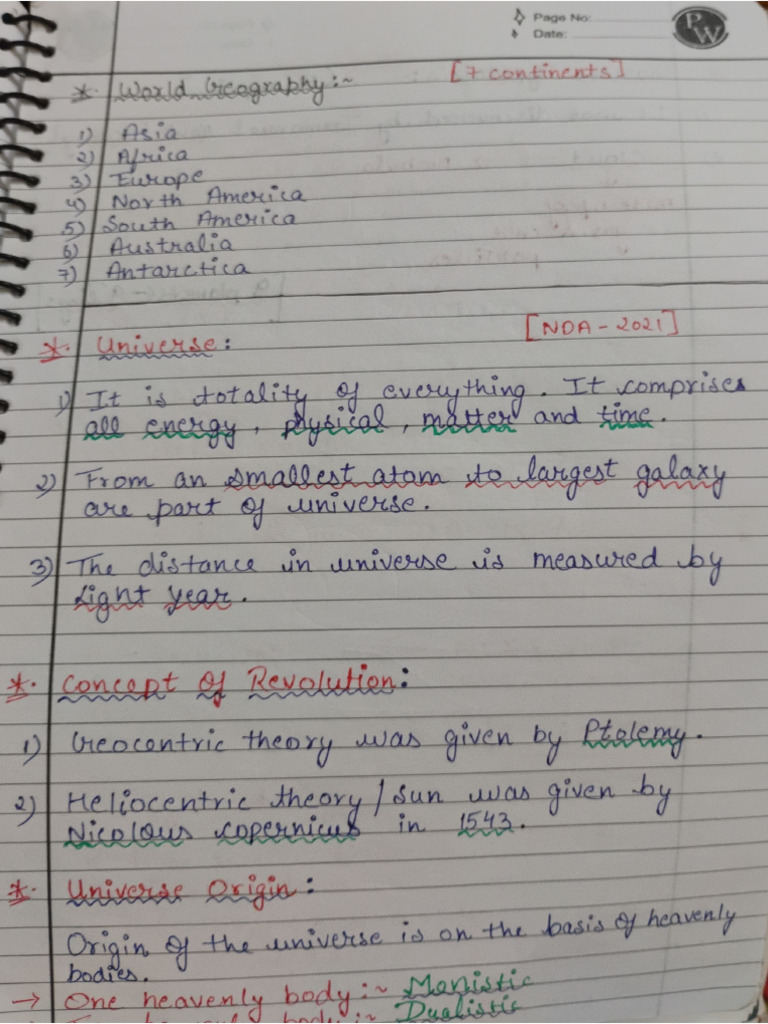 Page No:
Date:
PW
* World Geography:~ [7 continents]
1) Asia
2) Africa
3) Europe
4) North America
5) South America
6) Australia
7) Antarctica
* Universe: [NDA - 2021]
1) It is totality of everything. It comprises
all energy, physical, matter and time.
2) From an smallest atom to largest galaxy
are part of universe.
3) The distance in universe is measured by
Light year.
* Concept of Revolution:
1) Geocentric theory was given by Ptolemy.
2) Heliocentric theory / Sun was given by
Nicolous copernicus in 1543.
* Universe Origin:
Origin of the universe is on the basis of heavenly
bodies.
→ One heavenly body:~ Monistic
heavenly body:~ Dualistic